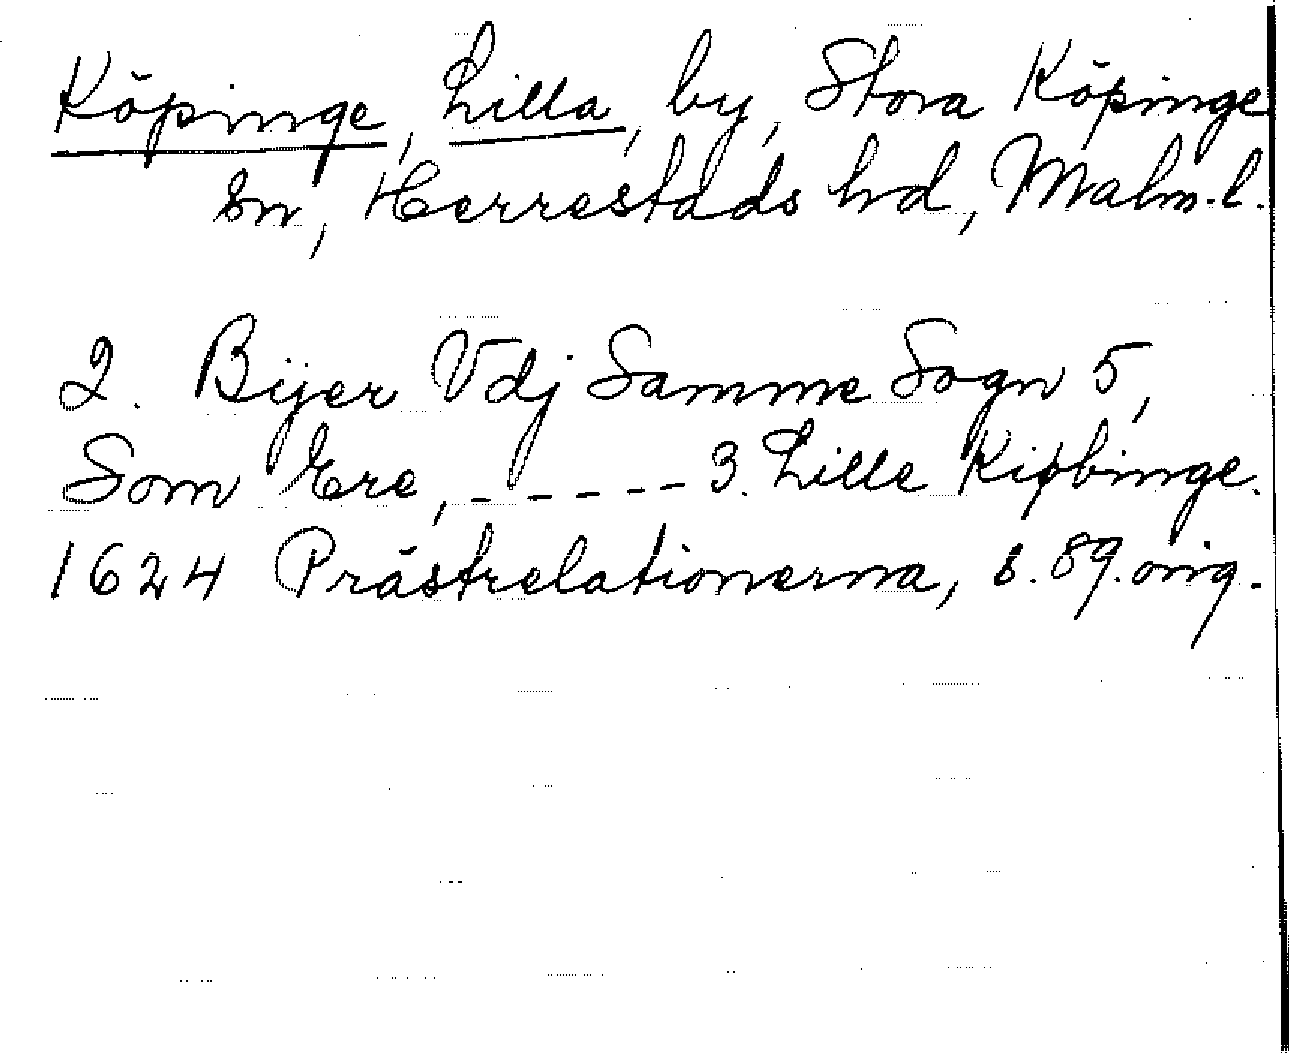 Köpinge, Lilla, by, Stora Köpinge
sn, Herrestads hd, Malm.l.
2. Bijer Vdj Samme Sogn 5,
Som Ere, - - - - - 3. Lille Kiøbinge.
1624 Prästrelationerna, s. 89. orig.